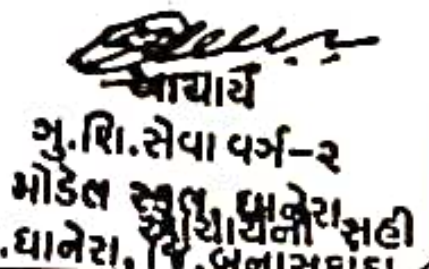 આચાર્ય
ગુ.શિ.સેવા વર્ગ-૨
મોડેલ સ્કુલ, ધાનેરા
આચાર્યની સહી
.ધાનેરા, જિ.બનાસકાંઠા